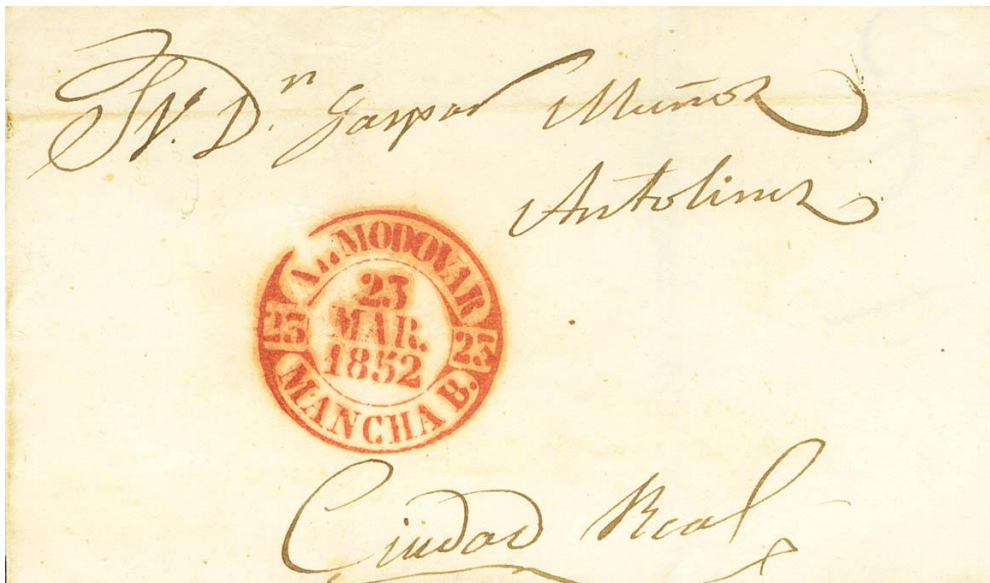 Sr. Dn. Gaspar Muñoz
Antolinez
ALMODOVAR
23
MAR.
1852
25
25
MANCHA B.
Ciudad Real